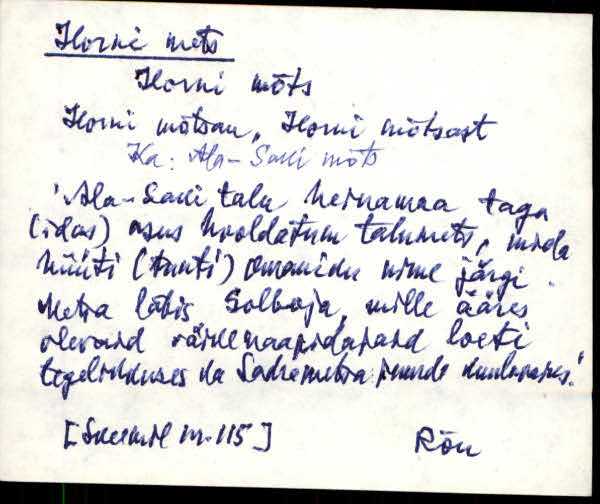 Horni mets
Horni mõts
Horni mõtsan, Horni mõtsast
Ka: Ala-Saki mõts
'Ala-Saki talu heinamaa taga
(idas) asus hooldatum talumets, mida
hüüti (tunti) omaniku nime järgi.
Metsa läbis Solboja, mille ääres
olevaid väikemaapidajaid loeti
tegelikkuses ka Sadrametsa juurde kuuluvaiks.'
nr. 115]
Rõu